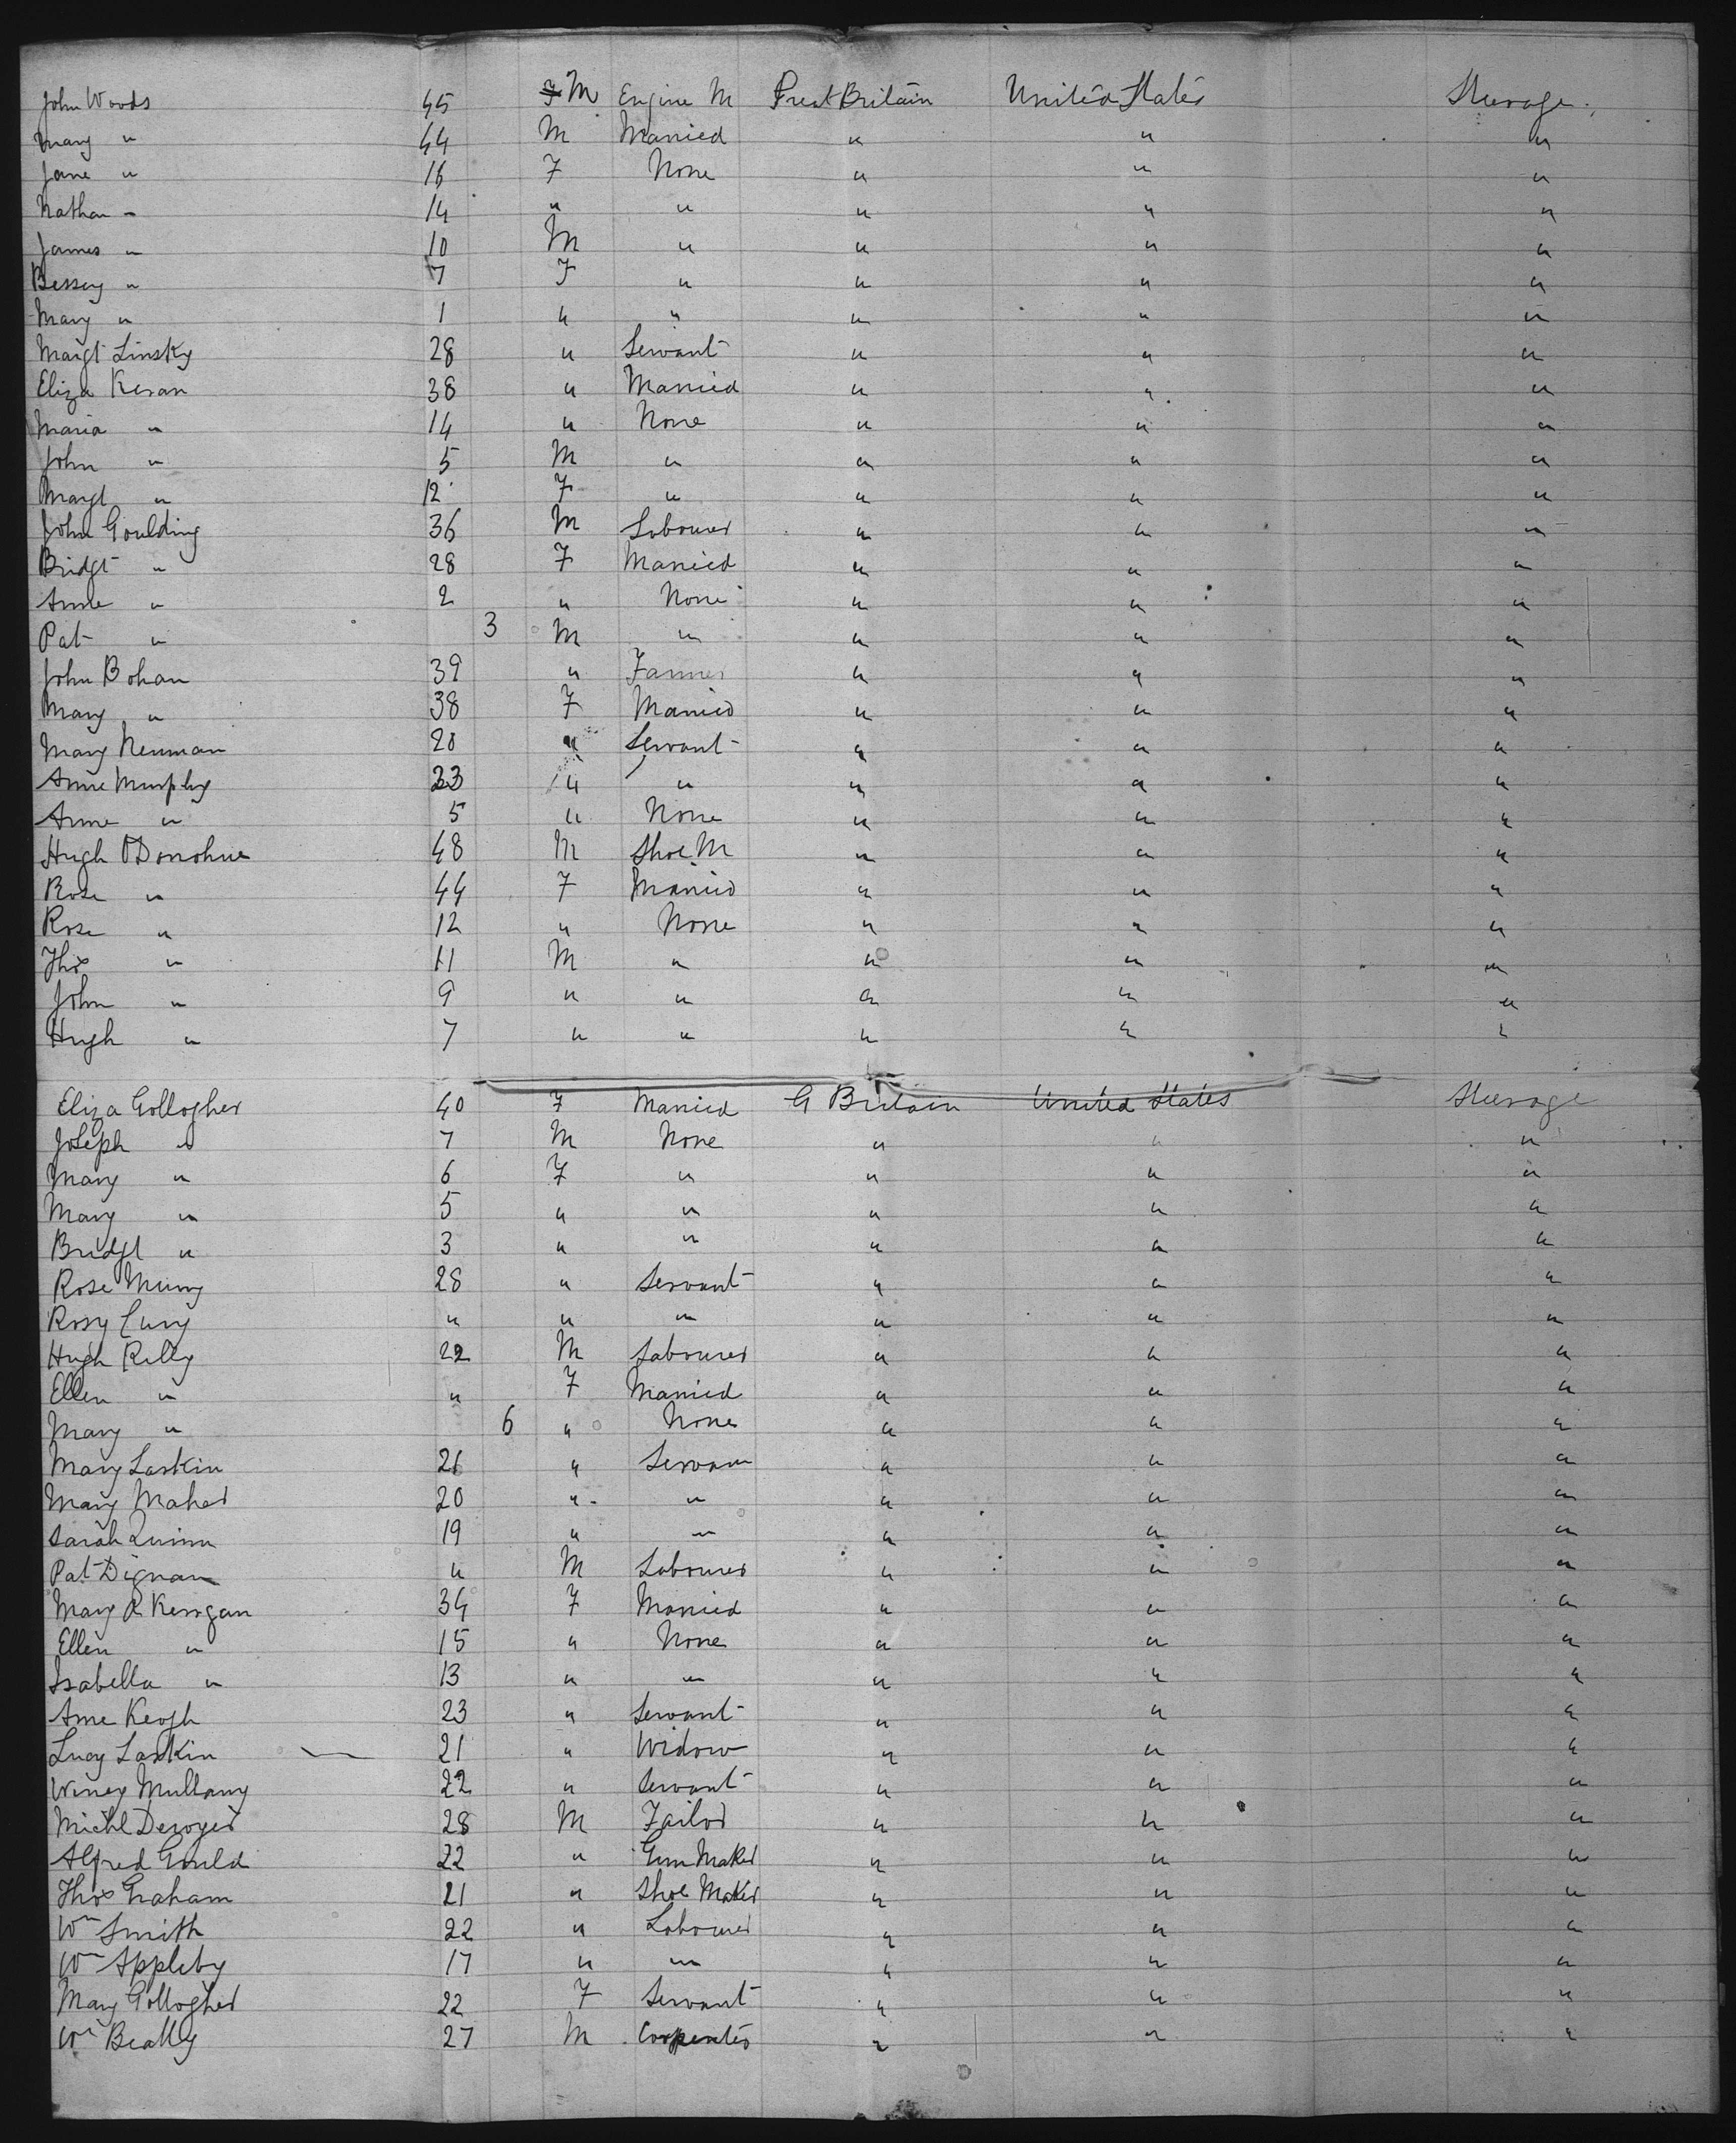 John Woods 45 F M Engine M Great Britain United States Steerage.
Mary " 44 M Married " " "
Jane " 16 F None " " "
Nathan " 14 " " " " "
James " 10 M " " " "
Bessey " 7 F " " " "
Mary " 1 " " " " "
Margt Linsky 28 " Servant " " "
Eliza Keran 38 " Married " " "
Maria " 14 " None " " "
John " 5 M " " " "
Margt " 12 F " " " "
John Goulding 36 M Labourer " " "
Bridgt " 28 F Married " " "
Anne " 2 " None " " "
Pat " 3 M " " " "
John Bohan 39 " Farmer " " "
Mary " 38 F Married " " "
Mary Newman 20 " Servant " " "
Anne Murphy 23 " " " " "
Anne " 5 " None " " "
Hugh O'Donohue 48 M Shoe M " " "
Rose " 44 F Married " " "
Rose " 12 " None " " "
Thos " 11 M " " " "
John " 9 " " " " "
Hugh " 7 " " " " "
Eliza Gollogher 40 F Married G Britain United States Steerage
Joseph " 7 M None " " "
Mary " 6 F " " " "
Mary " 5 " " " " "
Bridgt " 3 " " " " "
Rose 28 " Servant " " "
Rosy " " " " " "
Hugh Rilly 22 M Labourer " " "
Ellen " " F Married " " "
Mary " 6 " None " " "
Mary Larkin 21 " Servan " " "
Mary Maher 20 " " " " "
Sarah Quinn 19 " " " " "
Pat Dignan " M Labourer " " "
Mary A Kerrgan 34 F Married " " "
Ellen " 15 " None " " "
Isabella " 13 " " " " "
Anne Keogh 23 " Servant " " "
Lucy Larkin 21 " Widow " " "
Winey Mullany 22 " Servant " " "
Michl 28 M Tailor " " "
Alfred Gould 22 " Gun Maker " " "
Thos Graham 21 " Shoe Maker " " "
Wm Smith 22 " Labourer " " "
Wm Appleby 17 " " " " "
Mary Gollogher 22 F Servant " " "
Wm Beatty 27 M Carpenter " " "